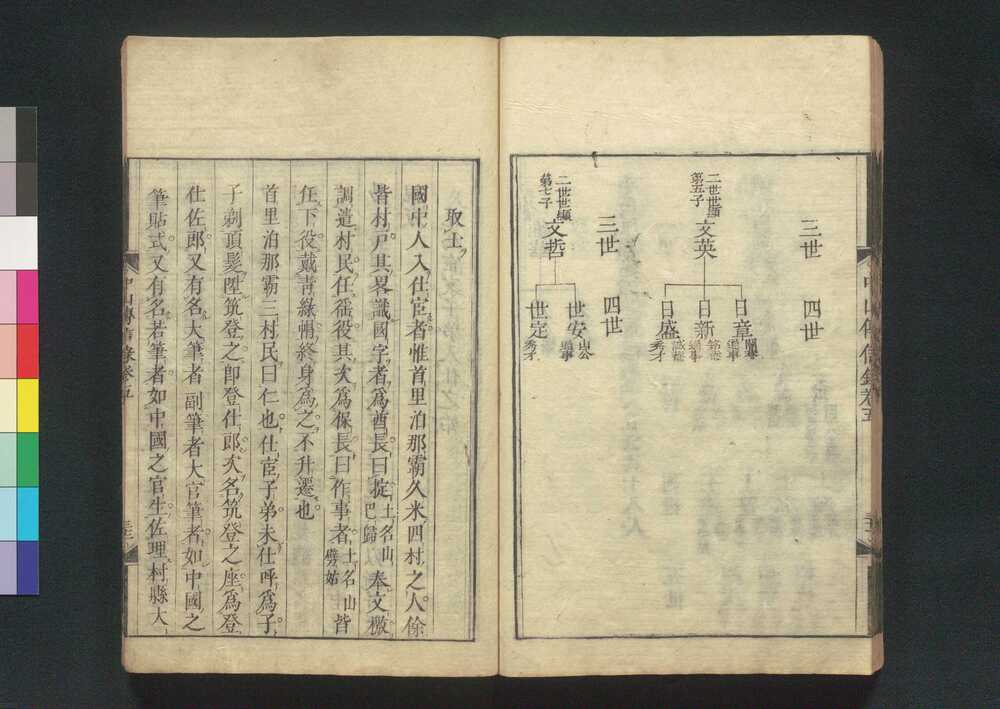 三世
四世
二世世顯
第五子
文英
日章
通事
日新
通事
日盛
秀才
三世
四世
二世世顯
第七子
文哲
世安
通事
世定
秀才
中山傳信錄卷五
取士
國中人入仕宦者惟首里泊那霸久米四村之人餘
皆村戸其畧識國字者爲酋長曰掟土名山巴歸奉文檄
調遣村民任徭役其次爲保長曰作事者土名山劈姑皆
任下役戴青綠帽終身爲之不升遷也
首里泊那霸三村民曰仁也仕宦子弟未仕呼爲子
子剃頂髮陞筑登之卽登仕郎次名筑登之座爲登
仕佐郎又有名大筆者副筆者大官筆者如中國之
筆貼式又有名若筆者如中國之官生佐理村縣大
中山傳信錄卷五